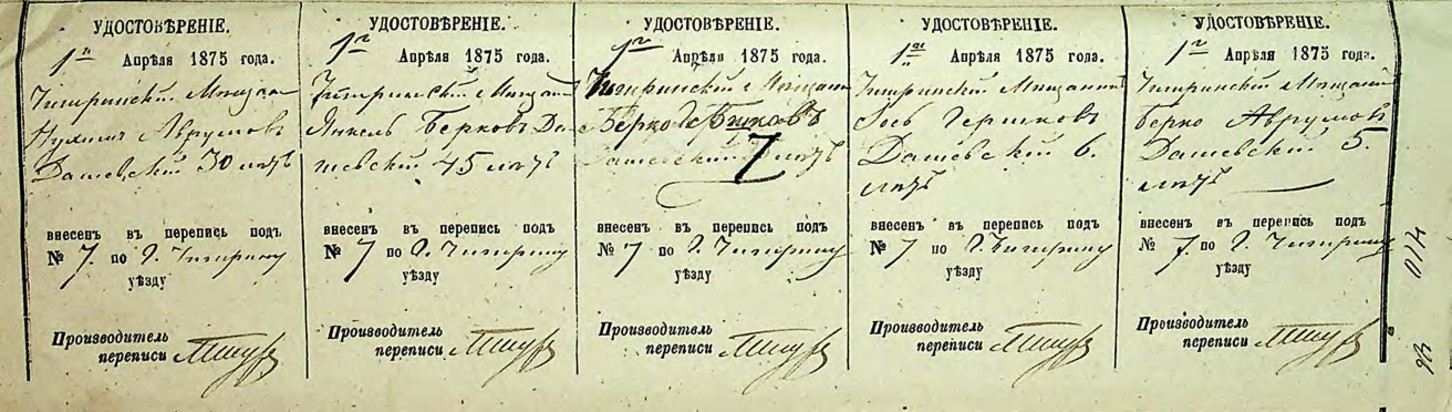 УДОСТОВѢРЕНІЕ.
1го Апрѣля 1875 года.
Чигиринскій Мѣщан
Аврумовъ
Дашевскій 30 лѣтъ
внесенъ въ перепись подъ
№ 7. по г. Чигирину
уѣзду
Производитель
переписи
УДОСТОВѢРЕНІЕ.
1го Апрѣля 1875 года.
Чигиринскій Мѣщан
Янкель Берковъ Да-
шевскій 45 лѣтъ
внесенъ въ перепись подъ
№ 7 по г. Чигирину
уѣзду
Производитель
переписи
УДОСТОВѢРЕНІЕ.
1го Апрѣля 1875 года.
Чигиринскій Мѣщан
Берко
Дашевскій 7 лѣтъ
внесенъ въ перепись подъ
№ 7 по г. Чигирину
уѣзду
Производитель
переписи
УДОСТОВѢРЕНІЕ.
1го Апрѣля 1875 года.
Чигиринскій Мѣщанинъ
Гершковъ
Дашевскій 6.
лѣтъ
внесенъ въ перепись подъ
№ 7 по г. Чигирину
уѣзду
Производитель
переписи
УДОСТОВѢРЕНІЕ.
1го Апрѣля 1875 года.
Чигиринскій Мѣщан
Берко Аврумовъ
Дашевскій 5.
лѣтъ
внесенъ въ перепись подъ
№ 7. по г. Чигирину
уѣзду
Производитель
переписи